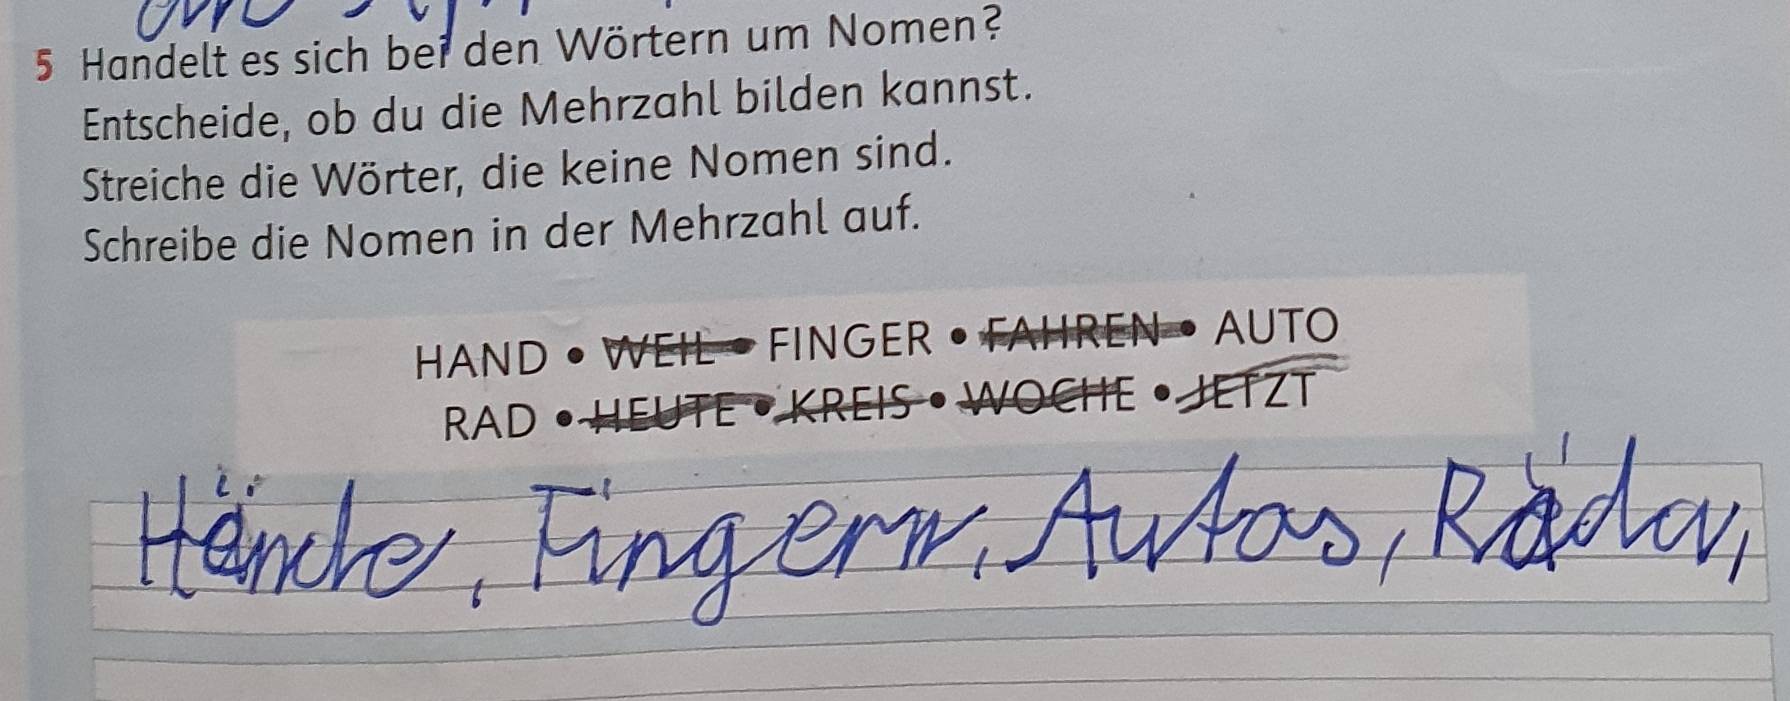 5 Handelt es sich bei den Wörtern um Nomen?
Entscheide, ob du die Mehrzahl bilden kannst.
Streiche die Wörter, die keine Nomen sind.
Schreibe die Nomen in der Mehrzahl auf.
HAND • WEIL • FINGER • FAHREN • AUTO
RAD • HEUTE • KREIS • WOCHE • JETZT
Hände, Fingern, Autos, Räder,